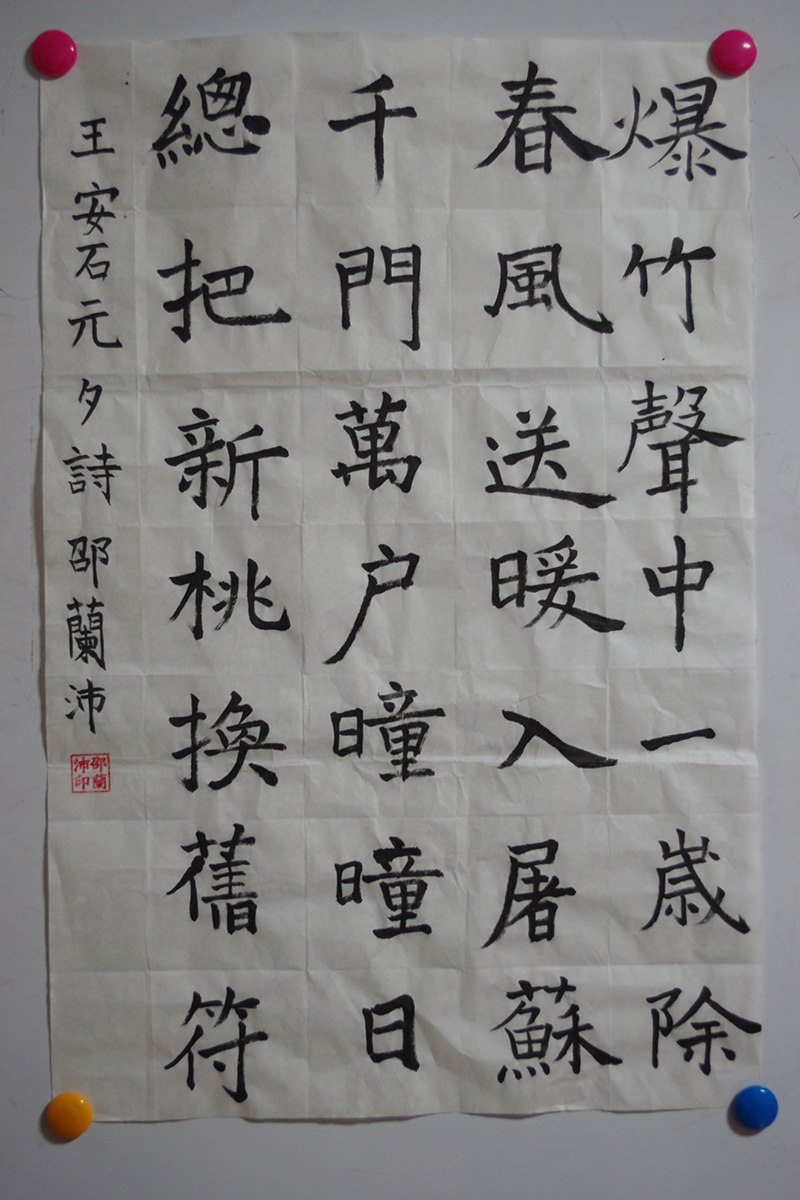 爆竹聲中一歲除
春風送暖入屠蘇
千門萬户曈曈日
總把新桃換舊符
王安石元夕詩邵蘭沛
邵蘭沛印